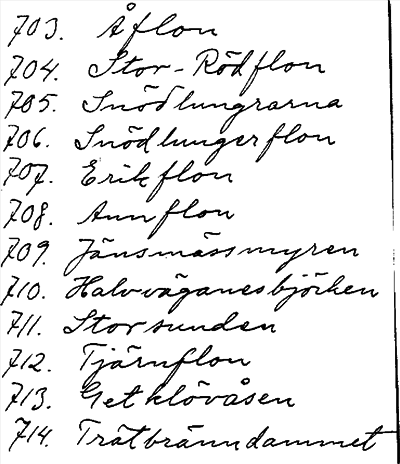 703. Åflon
704. Stor-Rödflon
705. Snödlungrarna
706. Snödlungerflon
707. Erikflon
708. Annflon
709. Jänsmässmyren
710. Halvväganesbjörken
711. Storsunden
712. Tjärnflon
713. Getklövåsen
714. Trätbränndammet